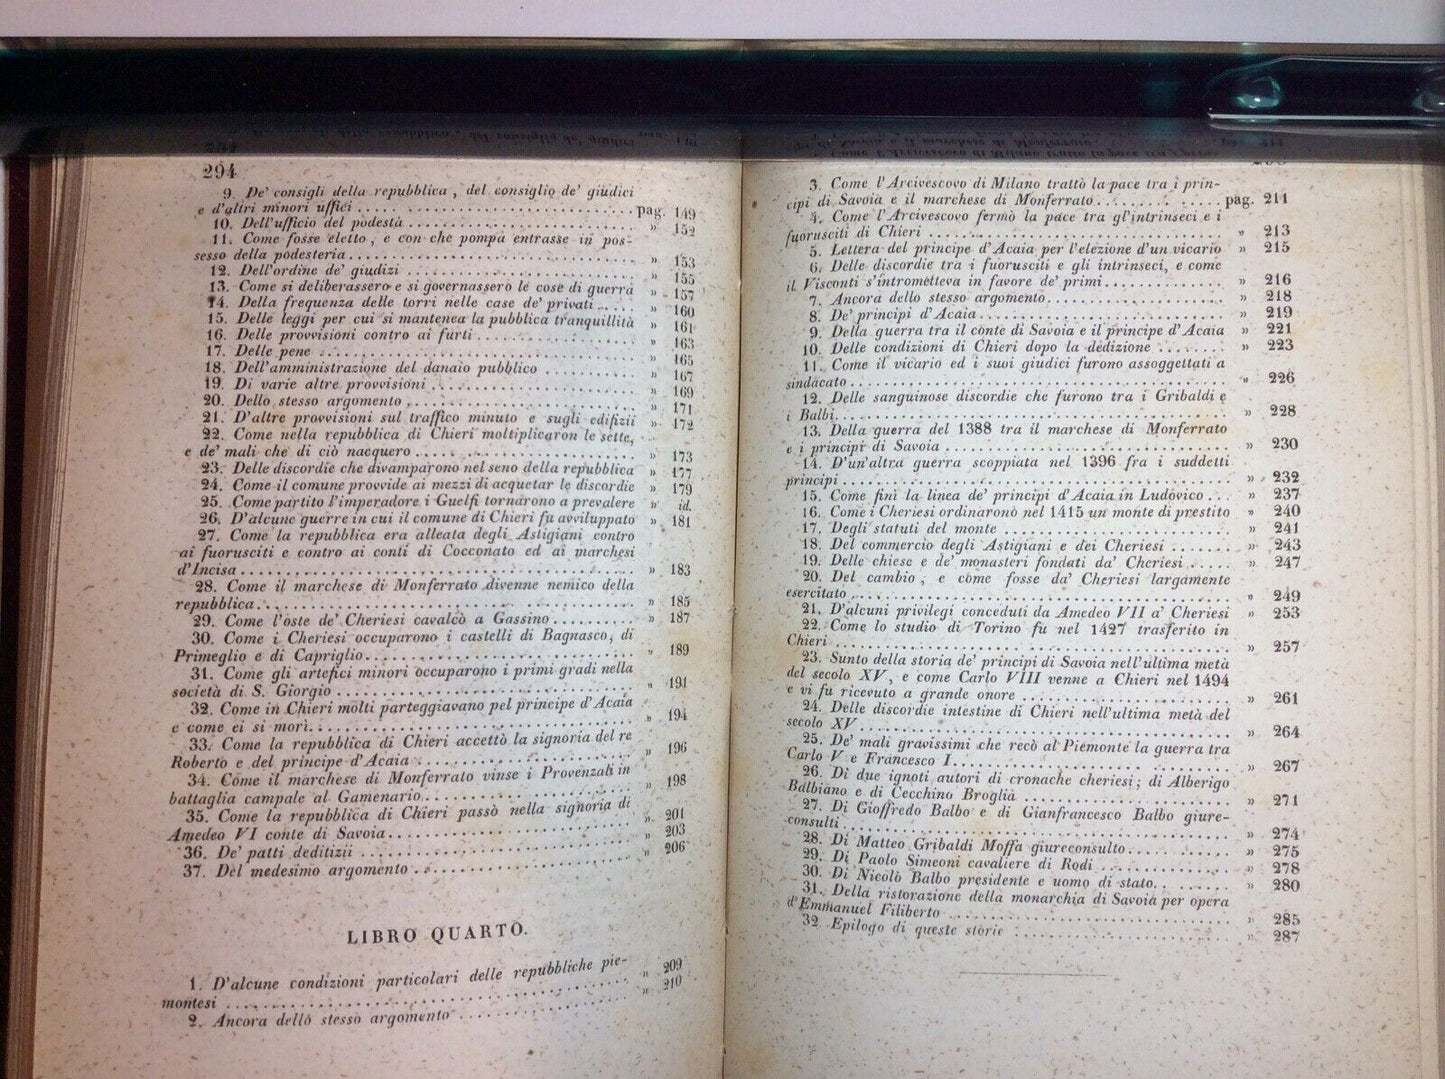 294
9. De' consigli della repubblica, del consiglio de' giudici
e d'altri minori uffici . . . . . pag. 149
10. Dell'ufficio del podestà . . . . . » 152
11. Come fosse eletto, e con che pompa entrasse in pos-
sesso della podesteria . . . . . » 153
12. Dell'ordine de' giudizi . . . . . » 155
13. Come si deliberassero e si governassero le cose di guerra » 157
14. Della frequenza delle torri nelle case de' privati . . . . . » 160
15. Delle leggi per cui si mantenea la pubblica tranquillità » 161
16. Delle provvisioni contro ai furti . . . . . » 163
17. Delle pene . . . . . » 165
18. Dell'amministrazione del danaio pubblico . . . . . » 167
19. Di varie altre provvisioni . . . . . » 169
20. Dello stesso argomento . . . . . » 171
21. D'altre provvisioni sul traffico minuto e sugli edifizii » 172
22. Come nella repubblica di Chieri moltiplicaron le sette,
e de' mali che di ciò nacquero . . . . . » 173
23. Delle discordie che divamparono nel seno della repubblica » 177
24. Come il comune provvide ai mezzi di acquetar le discordie » 179
25. Come partito l'imperadore i Guelfi tornarono a prevalere » id.
26. D'alcune guerre in cui il comune di Chieri fu avviluppato » 181
27. Come la repubblica era alleata degli Astigiani contro
ai fuorusciti e contro ai conti di Cocconato ed ai marchesi
d'Incisa . . . . . » 183
28. Come il marchese di Monferrato divenne nemico della
repubblica . . . . . » 185
29. Come l'oste de' Cheriesi cavalcò a Gassino . . . . . » 187
30. Come i Cheriesi occuparono i castelli di Bagnasco, di
Primeglio e di Capriglio . . . . . » 189
31. Come gli artefici minori occuparono i primi gradi nella
società di S. Giorgio . . . . . » 191
32. Come in Chieri molti parteggiavano pel principe d'Acaia
e come ei si morì . . . . . » 194
33. Come la repubblica di Chieri accettò la signoria del re
Roberto e del principe d'Acaia . . . . . » 196
34. Come il marchese di Monferrato vinse i Provenzali in
battaglia campale al Gamenario . . . . . » 198
35. Come la repubblica di Chieri passò nella signoria di
Amedeo VI conte di Savoia . . . . . » 201
36. De' patti deditizii . . . . . » 203
37. Del medesimo argomento . . . . . » 206
LIBRO QUARTO.
1. D'alcune condizioni particolari delle repubbliche pie-
montesi . . . . . » 209
2. Ancora dello stesso argomento . . . . . » 210
3. Come l'Arcivescovo di Milano trattò la pace tra i prin-
cipi di Savoia e il marchese di Monferrato . . . . . pag. 211
4. Come l'Arcivescovo fermò la pace tra gl'intrinseci e i
fuorusciti di Chieri . . . . . » 213
5. Lettera del principe d'Acaia per l'elezione d'un vicario » 215
6. Delle discordie tra i fuorusciti e gli intrinseci, e come
il Visconti s'intrometteva in favore de' primi . . . . . » 216
7. Ancora dello stesso argomento . . . . . » 218
8. De' principi d'Acaia . . . . . » 219
9. Della guerra tra il conte di Savoia e il principe d'Acaia » 221
10. Delle condizioni di Chieri dopo la dedizione . . . . . » 223
11. Come il vicario ed i suoi giudici furono assoggettati a
sindacato . . . . . » 226
12. Delle sanguinose discordie che furono tra i Gribaldi e
i Balbi . . . . . » 228
13. Della guerra del 1388 tra il marchese di Monferrato
e i principi di Savoia . . . . . » 230
14. D'un'altra guerra scoppiata nel 1396 fra i suddetti
principi . . . . . » 232
15. Come finì la linea de' principi d'Acaia in Ludovico . . . » 237
16. Come i Cheriesi ordinarono nel 1415 un monte di prestito » 240
17. Degli statuti del monte . . . . . » 241
18. Del commercio degli Astigiani e dei Cheriesi . . . . . » 243
19. Delle chiese e de' monasteri fondati da' Cheriesi . . . . . » 247
20. Del cambio, e come fosse da' Cheriesi largamente
esercitato . . . . . » 249
21. D'alcuni privilegi conceduti da Amedeo VII a' Cheriesi » 253
22. Come lo studio di Torino fu nel 1427 trasferito in
Chieri . . . . . » 257
23. Sunto della storia de' principi di Savoia nell'ultima metà
del secolo XV, e come Carlo VIII venne a Chieri nel 1494
e vi fu ricevuto a grande onore . . . . . » 261
24. Delle discordie intestine di Chieri nell'ultima metà del
secolo XV . . . . . » 264
25. De' mali gravissimi che recò al Piemonte la guerra tra
Carlo V e Francesco I . . . . . » 267
26. Di due ignoti autori di cronache cheriesi; di Alberigo
Balbiano e di Cecchino Broglia . . . . . » 271
27. Di Gioffredo Balbo e di Gianfrancesco Balbo giure-
consulti . . . . . » 274
28. Di Matteo Gribaldi Moffa giureconsulto . . . . . » 275
29. Di Paolo Simeoni cavaliere di Rodi . . . . . » 278
30. Di Nicolò Balbo presidente e uomo di stato . . . . . » 280
31. Della ristorazione della monarchia di Savoia per opera
d'Emmanuel Filiberto . . . . . » 285
32. Epilogo di queste storie . . . . . » 287